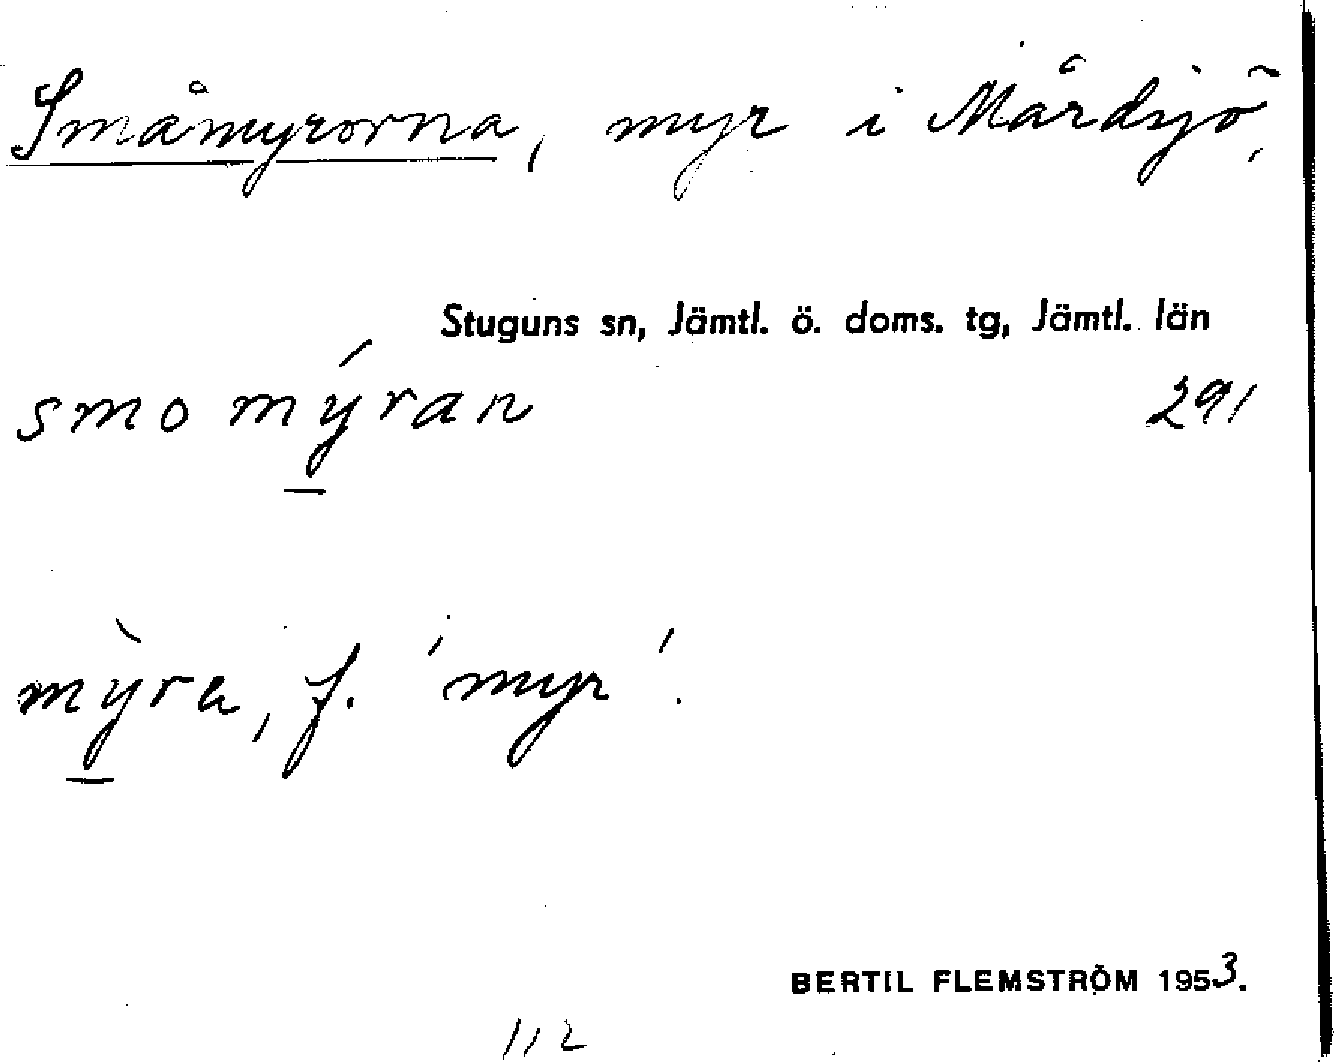 Småmyrorna, myr i Mårdsjö,
Stuguns sn, Jämtl. ö. doms. tg, Jämtl. län
smomýran 291
mỳra, f. 'myr'.
BERTIL FLEMSTRÖM 1953.
112